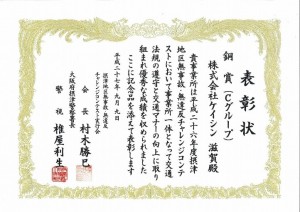 表彰状
銅賞(Cグループ)
株式会社ケイシン 滋賀殿
貴事業所は平成二十六年度摂津
地区無事故・無違反チャレンジコンテ
ストにおいて事業所一体となって交通
法規の遵守と交通マナーの向上に取り
組まれ優秀な成績を収められました
ここに記念品を添えて表彰します
平成二十七年九月九日
摂津地区無事故・無違反
チャレンジコンテスト実行委員会
会長 村木勝巳
大阪府摂津警察署長
警視 椎屋利生